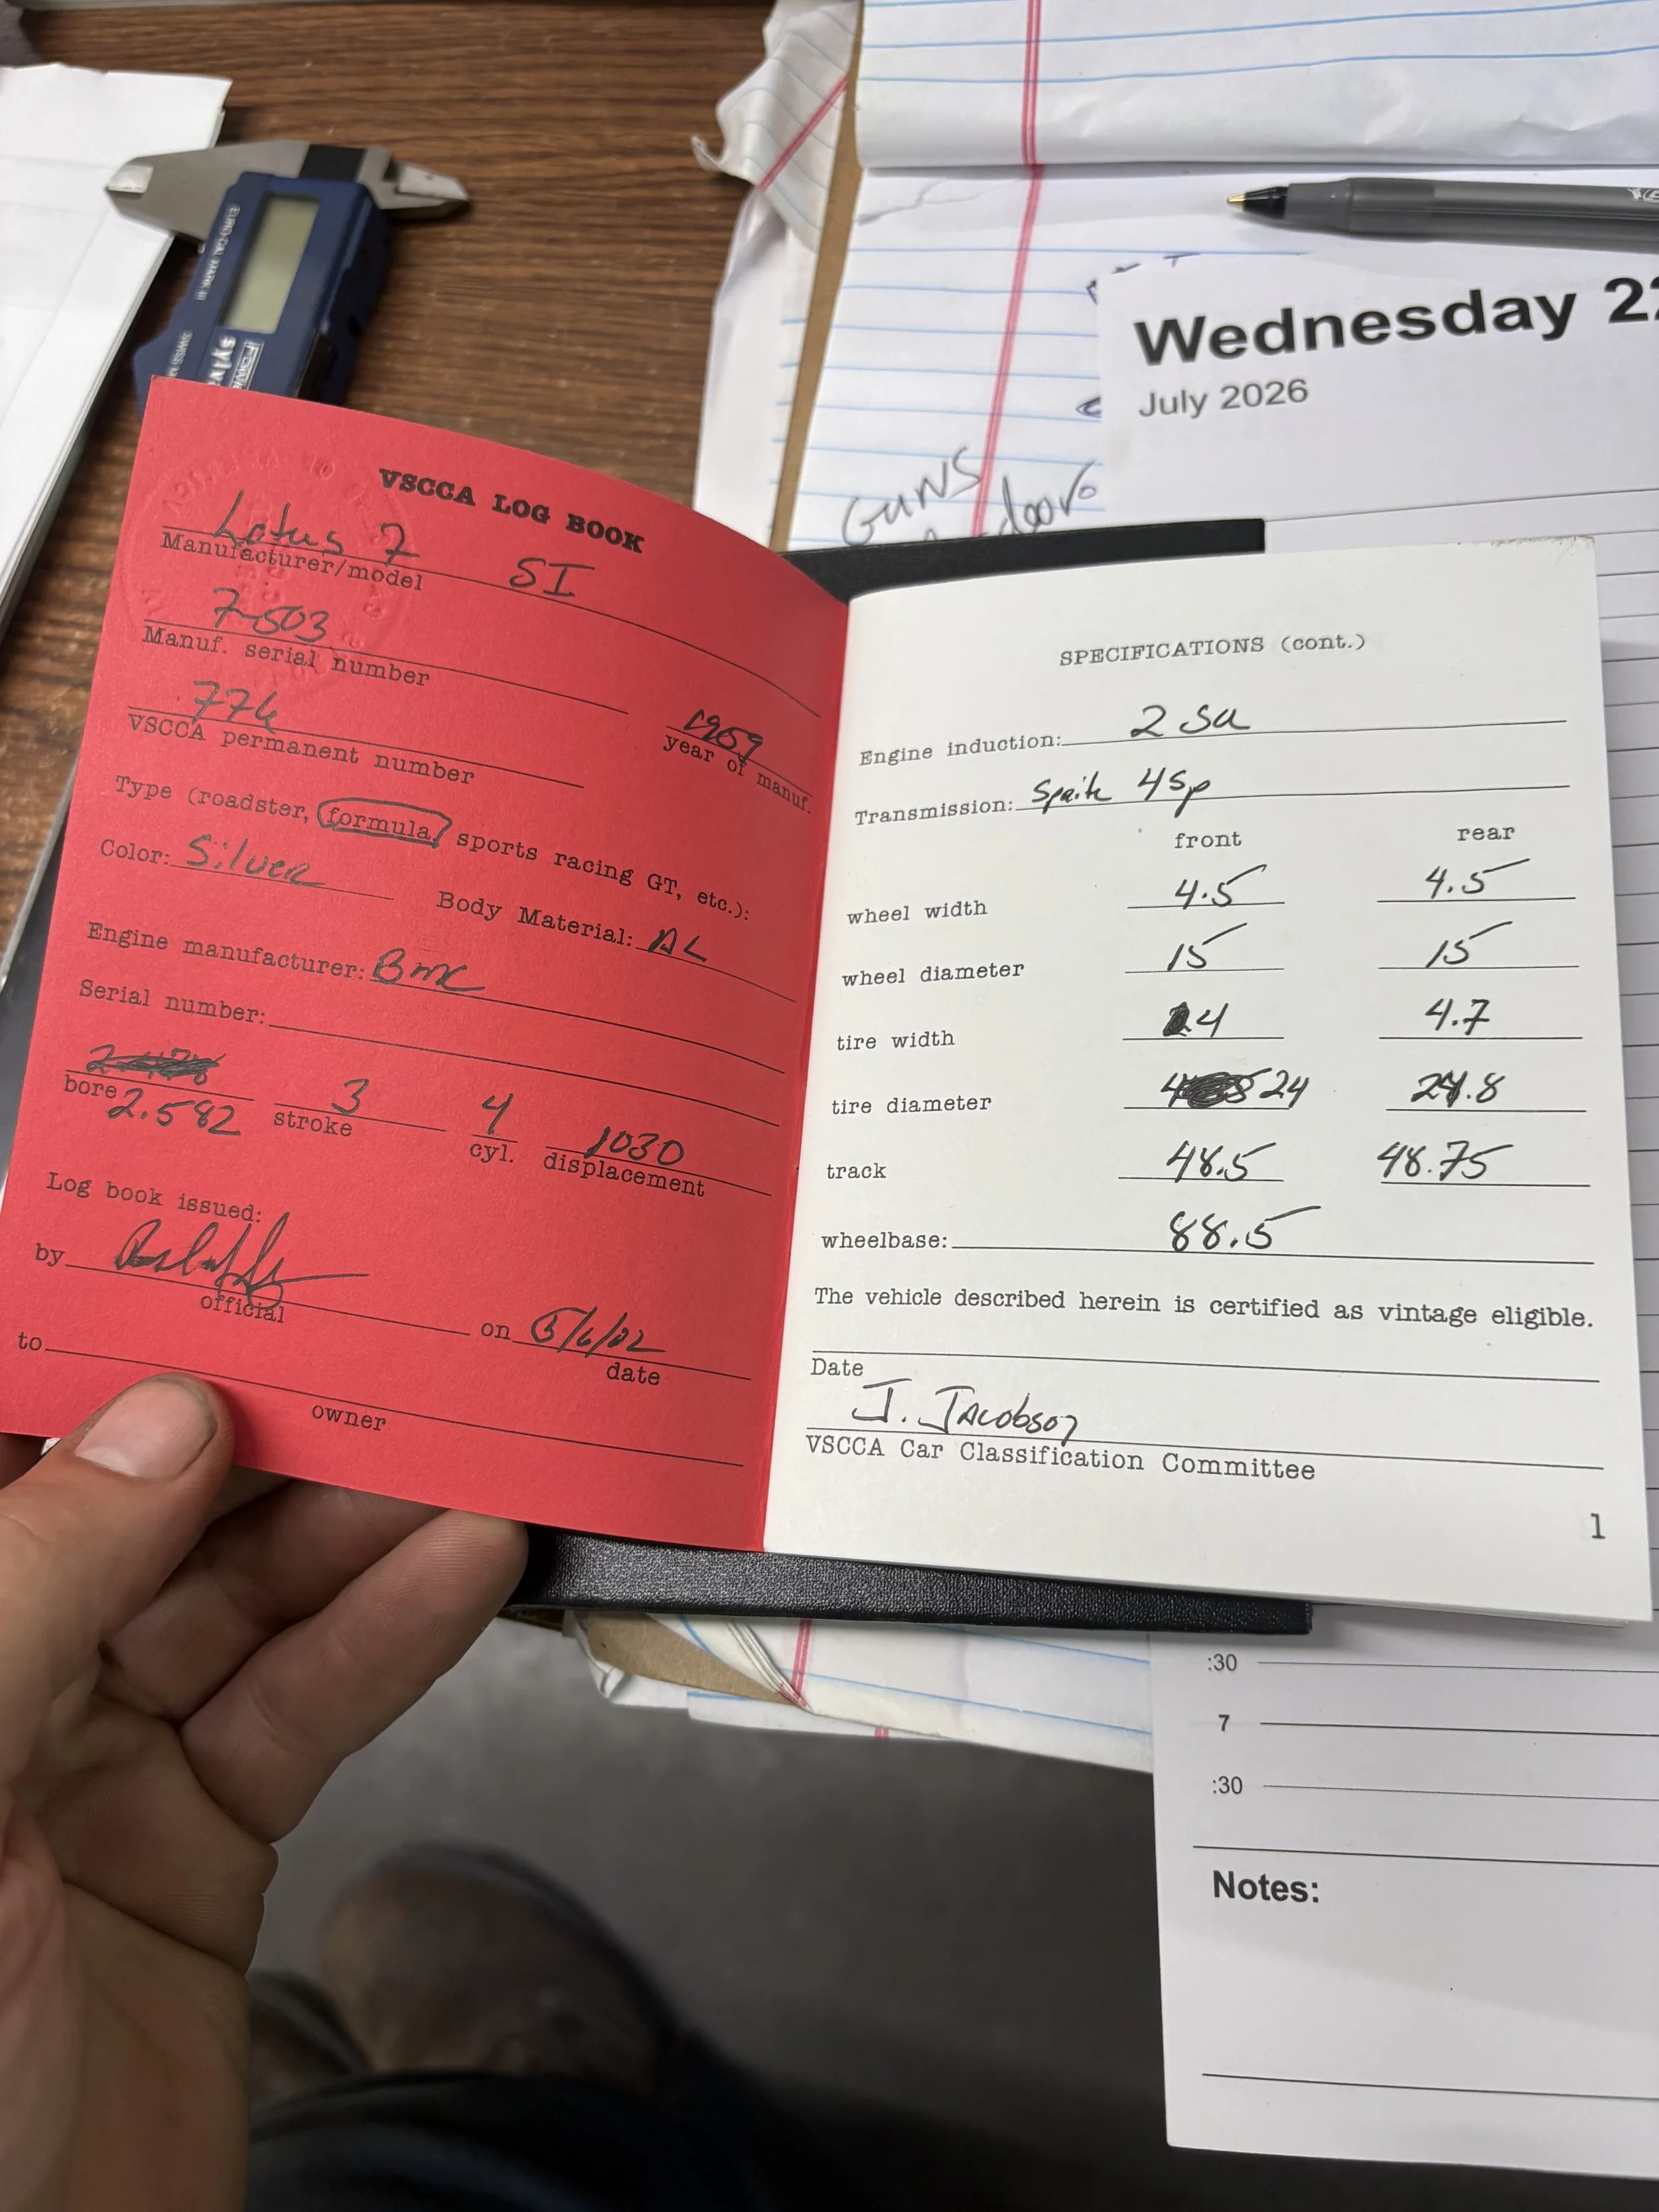 VSCCA LOG BOOK
Lotus 7 SI
Manufacturer/model
7-503
Manuf. serial number
1959
year of manuf.
VSCCA permanent number
Type (roadster, formula, sports racing GT, etc.):
Color: Silver
Body Material: AL
Engine manufacturer: BMC
Serial number:
bore 2.582
3
stroke
4
cyl.
1030
displacement
Log book issued:
by
official
on 5/6/02
date
to
owner
SPECIFICATIONS (cont.)
Engine induction: 2 SU
Transmission: 4 Sp
front rear
wheel width 4.5 4.5
wheel diameter 15 15
tire width 4 4.7
tire diameter 24 24.8
track 48.5 48.75
wheelbase: 88.5
The vehicle described herein is certified as vintage eligible.
Date
J. Jacobson
VSCCA Car Classification Committee
1
Wednesday
July 2026
GUNS
door
:30
7
:30
Notes: